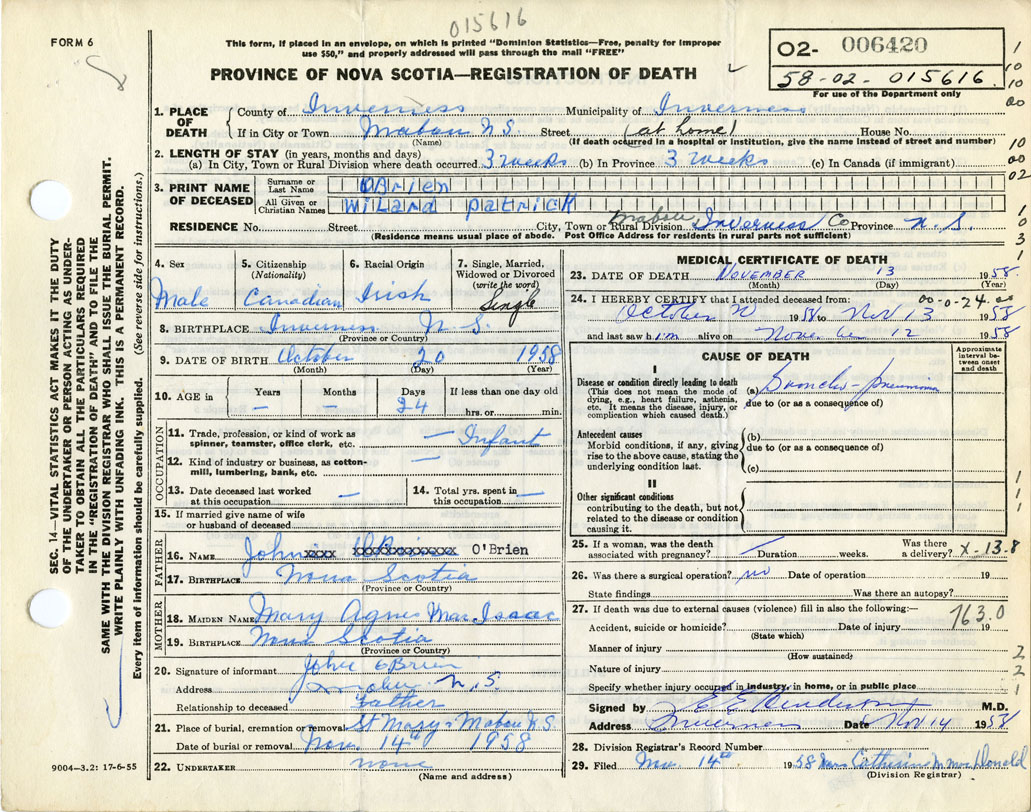 015616
FORM 6
This form, if placed in an envelope, on which is printed "Dominion Statistics—Free, penalty for improper
use $50," and properly addressed will pass through the mail "FREE"
PROVINCE OF NOVA SCOTIA—REGISTRATION OF DEATH
O2- 006420
58-02-015616
For use of the Department only
1. PLACE OF DEATH
County of Inverness Municipality of Inverness
If in City or Town Mabou N.S. Street (at home) House No.
(Name) (If death occurred in a hospital or institution, give the name instead of street and number)
2. LENGTH OF STAY (in years, months and days)
(a) In City, Town or Rural Division where death occurred 3 weeks (b) In Province 3 weeks (c) In Canada (if immigrant)
3. PRINT NAME OF DECEASED
Surname or Last Name OBrien
All Given or Christian Names Wilard Patrick
RESIDENCE No. Street City, Town or Rural Division Mabou Inverness Co Province N.S.
(Residence means usual place of abode. Post Office Address for residents in rural parts not sufficient)
4. Sex Male
5. Citizenship (Nationality) Canadian
6. Racial Origin Irish
7. Single, Married, Widowed or Divorced (write the word) Single
8. BIRTHPLACE Inverness N.S.
(Province or Country)
9. DATE OF BIRTH October 20 1958
(Month) (Day) (Year)
10. AGE in Years — Months — Days 24 If less than one day old hrs. or min.
OCCUPATION
11. Trade, profession, or kind of work as spinner, teamster, office clerk, etc. — Infant
12. Kind of industry or business, as cotton-mill, lumbering, bank, etc. —
13. Date deceased last worked at this occupation — 14. Total yrs. spent in this occupation —
15. If married give name of wife or husband of deceased
FATHER
16. NAME John O'Brien
17. BIRTHPLACE Nova Scotia
(Province or Country)
MOTHER
18. MAIDEN NAME Mary Agnes MacIsaac
19. BIRTHPLACE Nova Scotia
(Province or Country)
20. Signature of informant John OBrien
Address Mabou N.S.
Relationship to deceased Father
21. Place of burial, cremation or removal St Marys Mabou N.S.
Date of burial or removal Nov. 14 1958
22. UNDERTAKER none
(Name and address)
9004—3.2: 17-6-55
SEC. 14—VITAL STATISTICS ACT MAKES IT THE DUTY
OF THE UNDERTAKER OR PERSON ACTING AS UNDER-
TAKER TO OBTAIN ALL THE PARTICULARS REQUIRED
IN THE "REGISTRATION OF DEATH" AND TO FILE THE
SAME WITH THE DIVISION REGISTRAR WHO SHALL ISSUE THE BURIAL PERMIT.
WRITE PLAINLY WITH UNFADING INK. THIS IS A PERMANENT RECORD.
Every item of information should be carefully supplied. (See reverse side for instructions.)
MEDICAL CERTIFICATE OF DEATH
23. DATE OF DEATH November 13 1958
(Month) (Day) (Year)
24. I HEREBY CERTIFY that I attended deceased from: 00-0-24.00
October 20 1958 to Nov 13 1958
and last saw him alive on 12 1958
CAUSE OF DEATH
Approximate interval between onset and death
I
Disease or condition directly leading to death
(This does not mean the mode of dying, e.g., heart failure, asthenia, etc. It means the disease, injury, or complication which caused death.)
(a) Broncho-pneumonia
due to (or as a consequence of)
Antecedent causes
Morbid conditions, if any, giving rise to the above cause, stating the underlying condition last.
(b)
due to (or as a consequence of)
(c)
II
Other significant conditions
contributing to the death, but not related to the disease or condition causing it.
25. If a woman, was the death associated with pregnancy? Duration weeks. Was there a delivery? X-13-8
26. Was there a surgical operation? no Date of operation 19
State findings Was there an autopsy?
27. If death was due to external causes (violence) fill in also the following:—
763.0
Accident, suicide or homicide? Date of injury 19
(State which)
Manner of injury
(How sustained)
Nature of injury
Specify whether injury occurred in industry, in home, or in public place
Signed by M.D.
Address Inverness Date Nov 14 1958
28. Division Registrar's Record Number
29. Filed Nov. 14th 1958 Mrs Catherine M MacDonald
(Division Registrar)
1
10
10
00
10
00
02
1
0
3
1
1
1
1
2
2
1